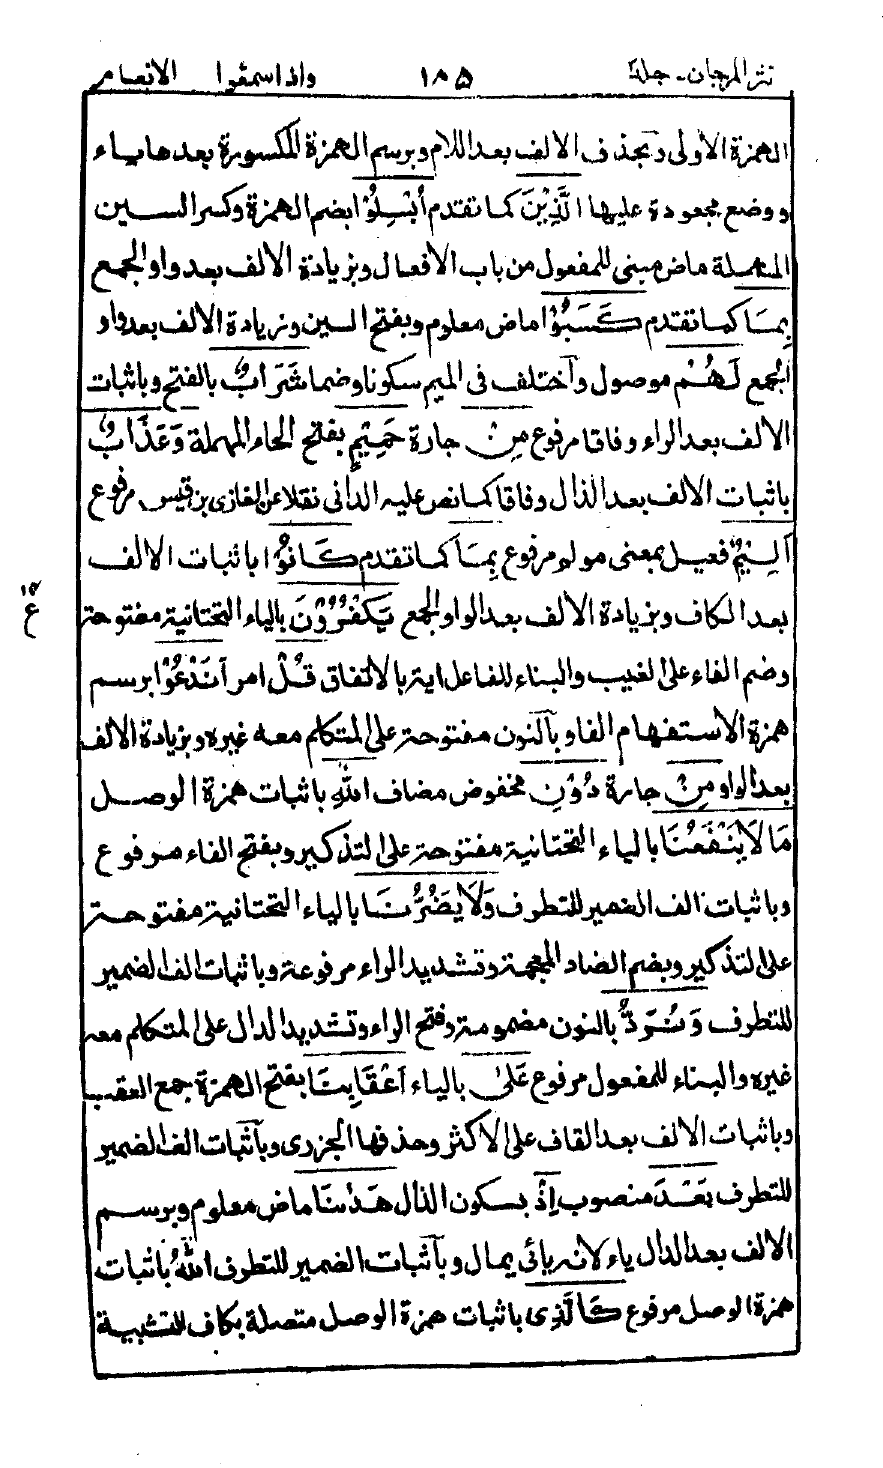 نثر المرجان - جلد ١٨٥ واذا سمعوا الانعام
الهمزة الاولى وبحذف الالف بعد اللام وبرسم الهمزة المكسورة بعدها ياء
ووضع مجعودة عليها الَّذِيْنَ كما تقدم اُبْسِلُوْا بضم الهمزة وكسر السين
المهملة ماض مبنى للمفعول من باب الافعال وبزيادة الالف بعد واو الجمع
بِمَا كما تقدم كَسَبُوْا ماض معلوم وبفتح السين وبزيادة الالف بعد واو
الجمع لَهُمْ موصول واختلف فى الميم سكونا وضما شَرَابٌ بالفتح وباثبات
الالف بعد الراء وفاقا مرفوع مِنْ جارة حَمِيْمٍ بفتح الحاء المهملة وَعَذَابٌ
باثبات الالف بعد الذال وفاقا كما نص عليه الدانى نقلا عن الغازى بن قيس مرفوع
اَلِيْمٌ فعيل بمعنى مولم مرفوع بِمَا كما تقدم كَانُوْا باثبات الالف
بعد الكاف وبزيادة الالف بعد الواو الجمع يَكْفُرُوْنَ بالياء التحتانية مفتوحة
وضم الفاء على الغيب والبناء للفاعل اية بالاتفاق قُلْ امر اَنَدْعُوْا برسم
همزة الاستفهام الفا وبالنون مفتوحة على المتكلم معه غيره وبزيادة الالف
بعد الواو مِنْ جارة دُوْنِ مخفوض مضاف اللهِ باثبات همزة الوصل
مَا لَا يَنْفَعُنَا بالياء التحتانية مفتوحة على التذكير وبفتح الفاء مرفوع
وباثبات الف الضمير للتطرف وَلَا يَضُرُّنَا بالياء التحتانية مفتوحة
على التذكير وبضم الضاد المعجمة وتشديد الراء مرفوعة وباثبات الف الضمير
للتطرف وَنُرَدُّ بالنون مضمومة وفتح الراء وتشديد الدال على المتكلم معه
غيره والبناء للمفعول مرفوع عَلٰى بالياء اَعْقَابِنَا بفتح الهمزة جمع العقب
وباثبات الالف بعد القاف على الاكثر وحذفها الجزرى وباثبات الف الضمير
للتطرف بَعْدَ منصوب اِذْ بسكون الذال هَدٰىنَا ماض معلوم وبرسم
الالف بعد الدال ياء لانه يائى يمال وباثبات الضمير للتطرف اللهُ باثبات
همزة الوصل مرفوع كَالَّذِى باثبات همزة الوصل متصلة بكاف التشبية
ع